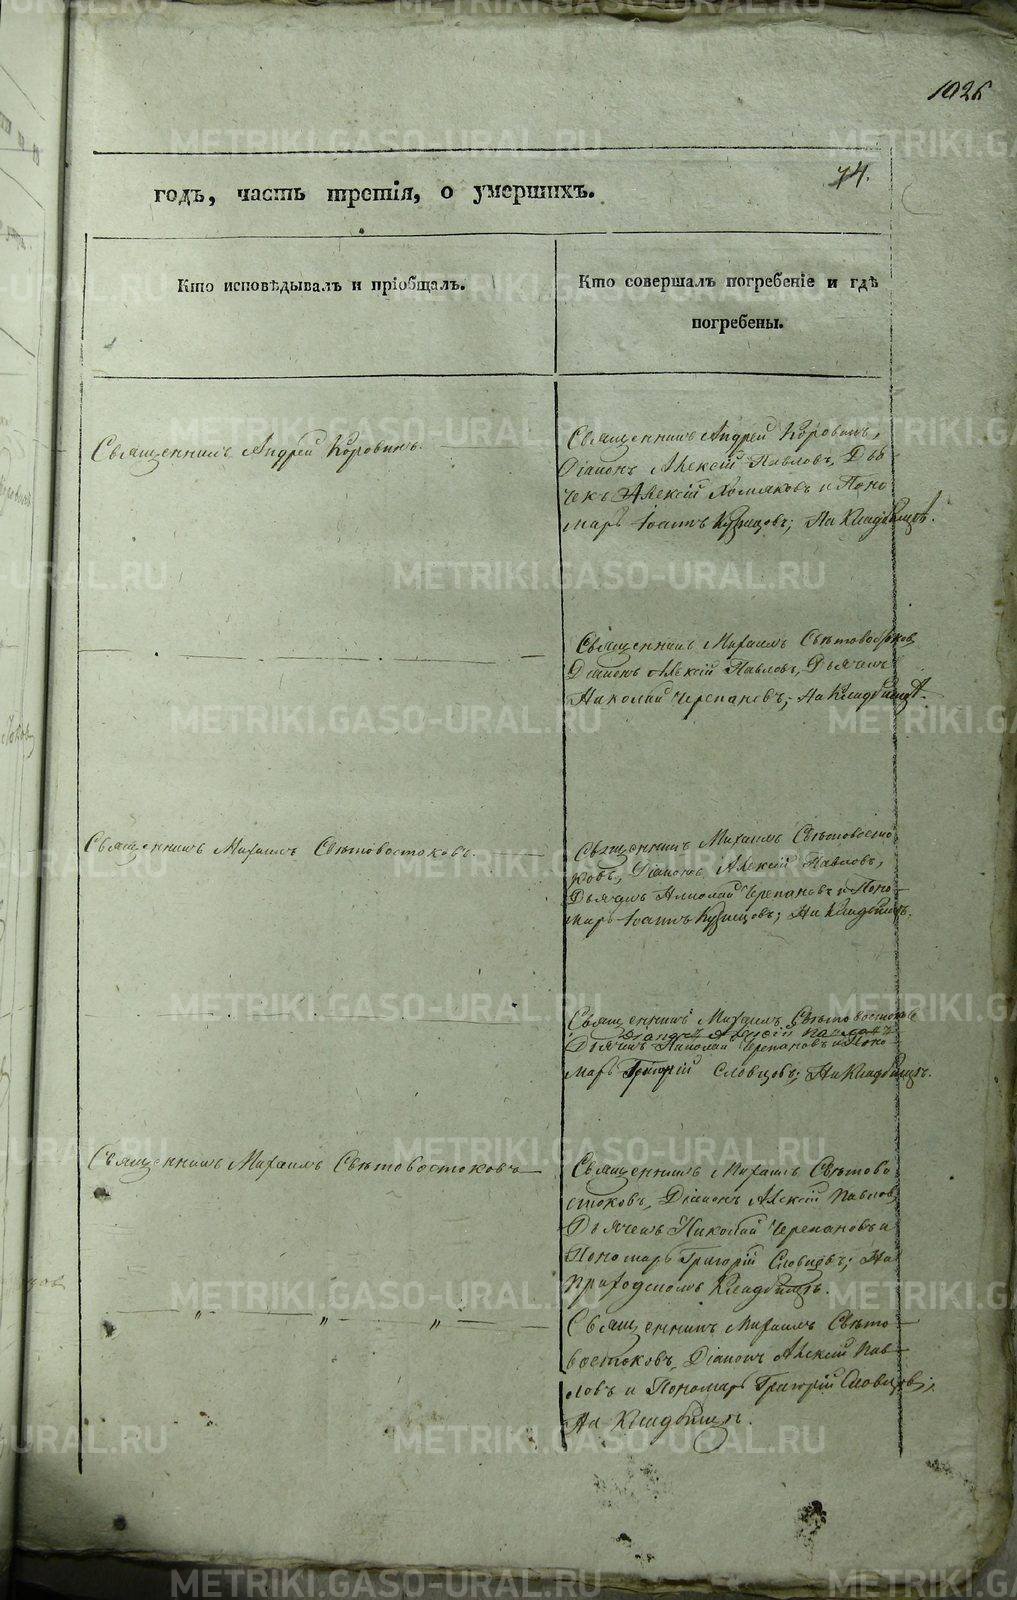 74.
годъ, часть третія, о умершихъ.
Кто исповѣдывалъ и пріобщалъ.
Кто совершалъ погребеніе и гдѣ
погребены.
Священникъ Андрей Коровинъ.
Священникъ Андрей Коровинъ,
Діаконъ Алексій Павловъ, Дья
чекъ Алексій Хомяковъ и Поно
марь Іоаннъ Кузнецовъ; На Кладбищѣ.
Священникъ Михаилъ Свѣтовостоковъ,
Діаконъ Алексій Павловъ, Дьячекъ
Николай Черепановъ; На Кладбищѣ.
Священникъ Михаилъ Свѣтовостоковъ.
Священникъ Михаилъ Свѣтовосто
ковъ, Діаконъ Алексій Павловъ,
Дьячекъ Николай Черепановъ и Поно
марь Іоаннъ Кузнецовъ; На Кладбищѣ.
Священникъ Михаилъ Свѣтовостоковъ
Діаконъ Алексій Павловъ
Дьячекъ Николай Черепановъ и Поно
марь Григорій Словцовъ; На Кладбищѣ.
Священникъ Михаилъ Свѣтовостоковъ
Священникъ Михаилъ Свѣтово
стоковъ, Діаконъ Алексій Павловъ,
Дьячекъ Николай Черепановъ и
Пономарь Григорій Словцовъ; На
Приходскомъ Кладбищѣ.
— „ — „ — „ —
Священникъ Михаилъ Свѣто
востоковъ, Діаконъ Алексій Пав
ловъ и Пономарь Григорій Словцовъ;
На Кладбищѣ.
METRIKI.GASO-URAL.RU